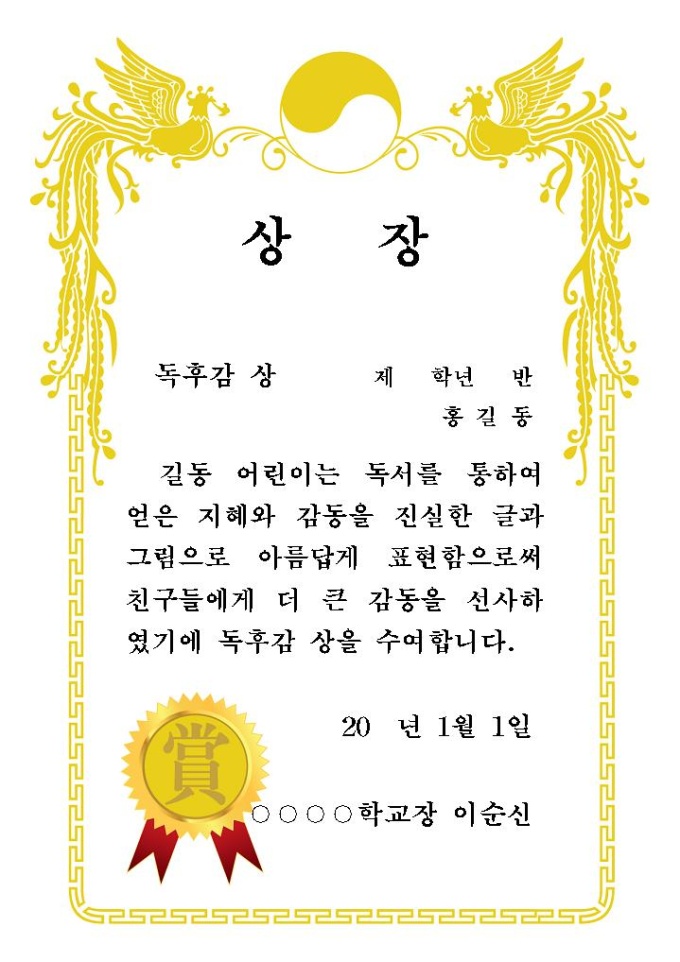 상 장
독후감 상 제 학년 반
홍 길 동
길동 어린이는 독서를 통하여
얻은 지혜와 감동을 진실한 글과
그림으로 아름답게 표현함으로써
친구들에게 더 큰 감동을 선사하
였기에 독후감 상을 수여합니다.
20 년 1월 1일
賞
○○○○학교장 이순신